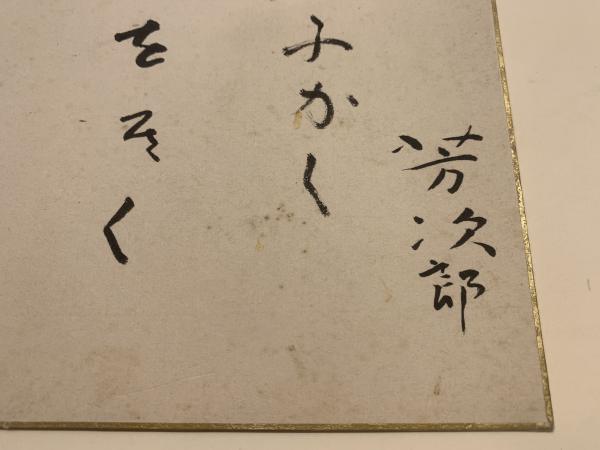 芳次郎
ふかく
をそく